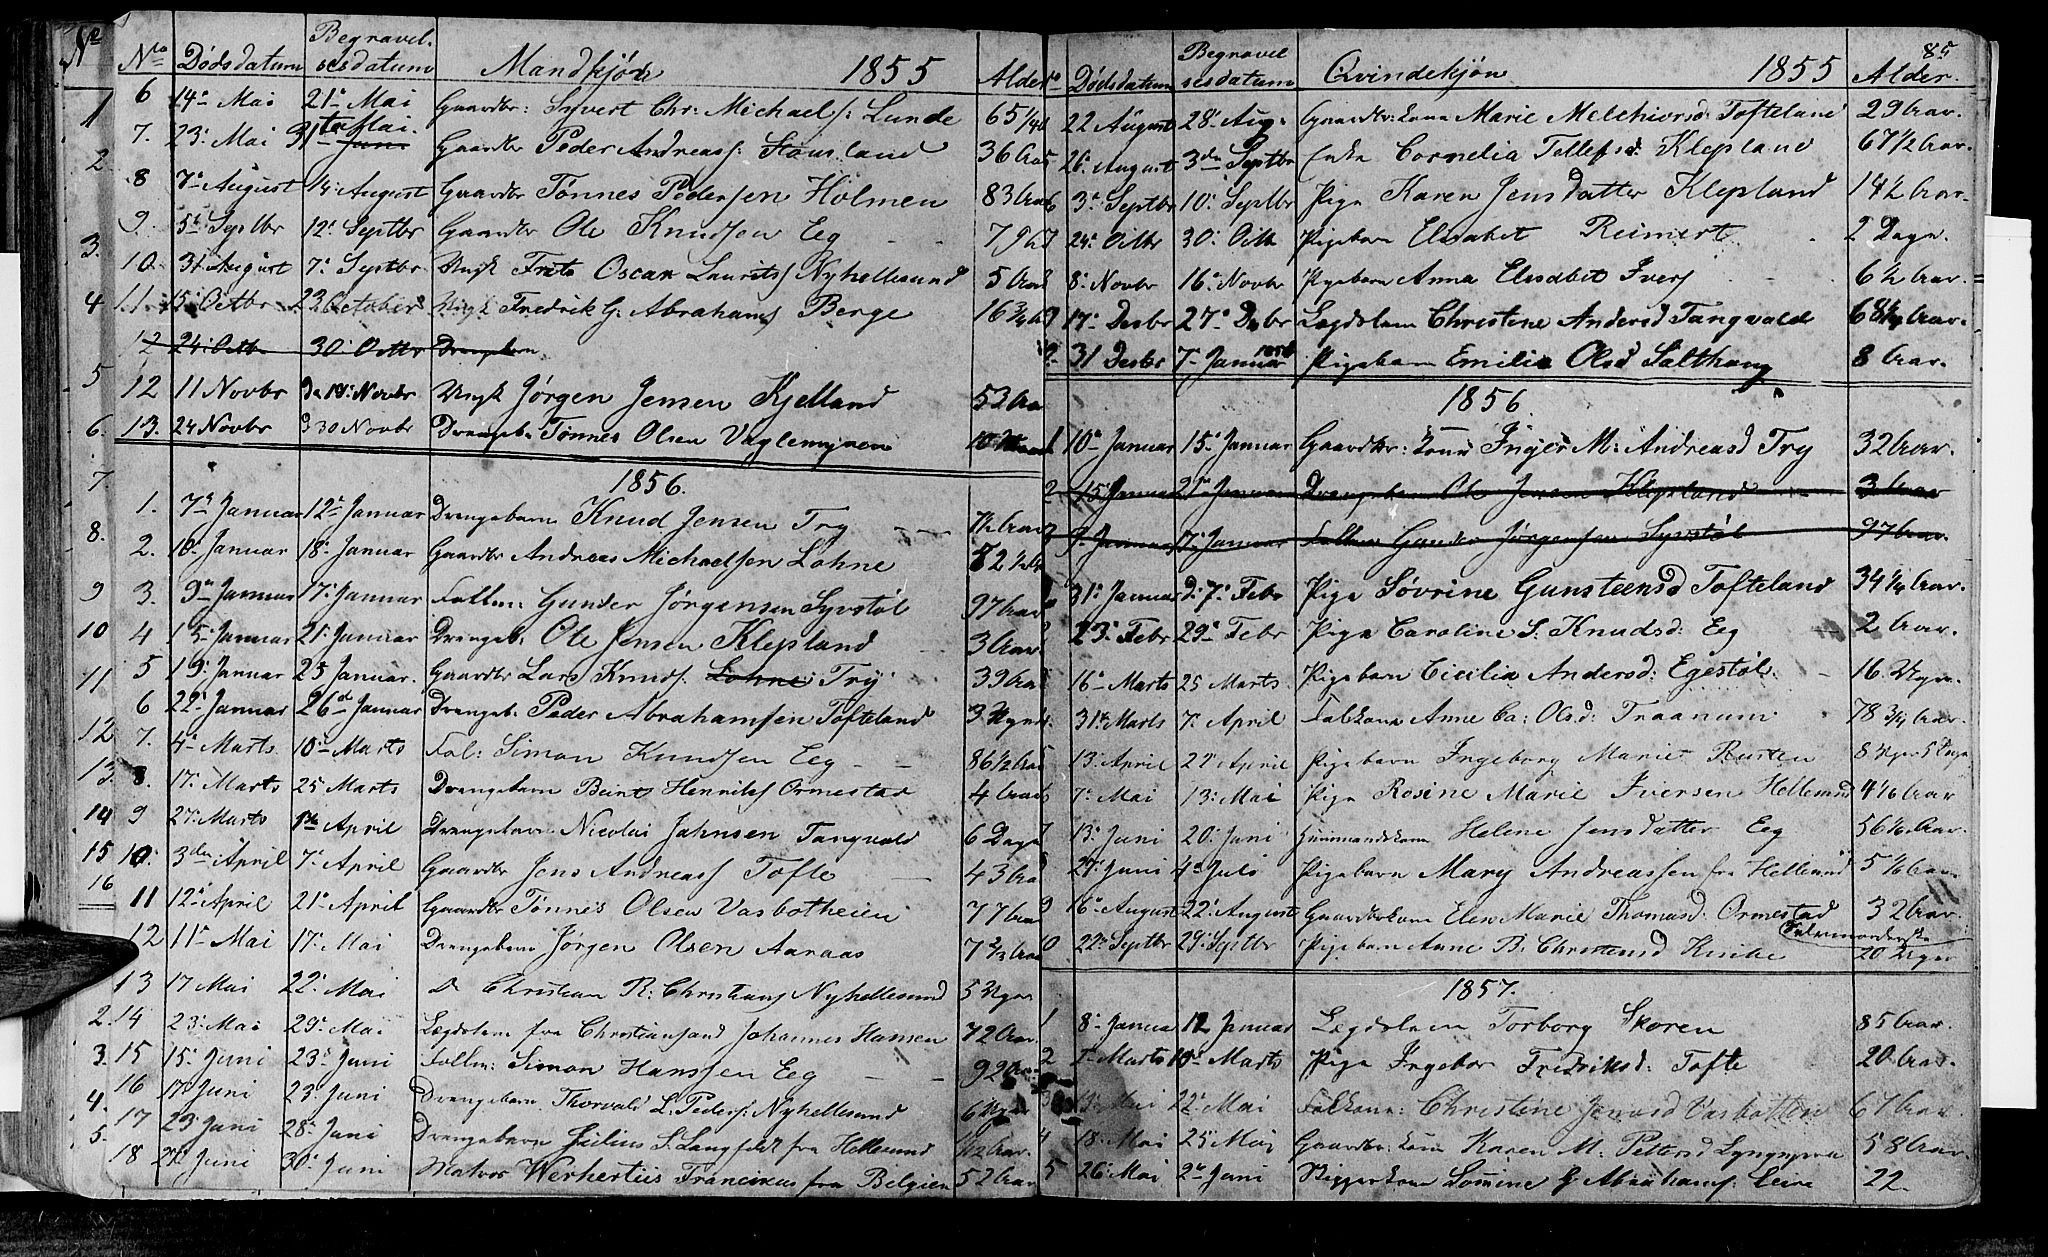 No Dødsdatum Begravelsesdatum Mandkjøn 1855 Alder
6 14de Mai 21de Mai Gaardbr: Syvert Chr: Michaels: Lunde 65 1/4
7. 23: Mai 31te Mai Juni Gaardbr Peder Andreass: 36 Aar
8 7de August 14: August Gaardbr Tønnes Pedersen Holmen 83 Aar
9. 5te Septbr 12te Septbr Gaardbr Ole Knudsen Eeg 79
10. 31 August 7: Septbr Ungk Frits Oscar Laurits: Nyhellesund 5 Aar
11. 15 Octbr 23 October Ungk Fredrik G. Abrahams Berge 16 3/4
12 24: Octb 30: Octbr Drengebarn
12 11 Novbr D 19: Novbr Ungk Jørgen Jensen Kjelland 53 Aar
13. 24 Novbr D 30 Novbr Drengeb. Tønnes Olsen Vaglemyren 10
1856.
1. 7de Januar 12te Januar Drengebarn Knud Jensen Try Aar
2. 10: Januar 18: Januar Gaardbr Andreas Michaelsen Lohne 82 1/2
3. 9de Januar 17: Januar Follm: Gunder Jørgensen Syvstøl 97 Aar
4 15: Januar 21: Januar Drengeb: Ole Jensen Klepland 3 Aar
5 19: Januar 25 Januar. Gaardbr Lars Knuds: Lohne Try 39 Aar
6 22: Januar 26d Januar Drengeb. Peder Abrahamsen Tofteland 3
7. 4de Marts 10de Marts Fol: Simon Knudsen Eeg 86 1/2 Aar
8. 17: Marts 25 Marts Drengebarn Beint Henriks Ormestad 4 Aar
9 27: Marts 1ste April Drengebarn Nicolai Jahnsen Tangvald 6 Dage
10. 3die April 7: April Gaardbr Jens Andreass Tofte 43 Aar
11 12te April 21: April Gaardbr Tønnes Olsen Vasbotheien 77 Aar
12 11te Mai 17: Mai Drengebarn Jørgen Olsen Aaraas 7 2/3 Aar
13 17 Mai 22: Mai D Christian R: Christians Nyhellesund 5 Uger
14 23: Mai 29: Mai Lægdslem fra Christiansand Johannes Hansen 72 Aar
15 15: Juni 23: Juni Follm: Simon Hanssen Eeg 92 Aar
16 17: Juni 23: Juni Drengebarn Thorvald L. Peders: Nyhellesund 6 Uger
17 23 Juni 28: Juni Drengebarn Julius S. Langfeldt fra Hellesund 1 1/2 Aar.
18 Juni 30: Juni Matros Werhertiis Francireus fra Belgien 52 Aar
85
Dødsdatum Begravelsesdatum Qvindekjøn 1855 Alder.
22 August 28: Aug: Gaardbr: kone Marie Melchiorsd: Tofteland 29 Aar.
26. August 3die Septbr Enke Cornelia Tellefsd: Klepland 67 1/2 Aar.
6 3de Septbr 10: Septbr Pige Karen Jensdatter Klepland 14 1/2 Aar.
7 24: Octbr 30: Octb Pigebarn Elisabet Reimert 2 Dage.
8 8: Novbr 16: Novbr Pigebarn Anna Elisabet Ivers 6 1/2 Aar.
9 17: Decbr 27: Decbr Lægdslem Christine Andersd Tangvald 68 1/4 Aar.
31 Decbr 7: Januar 1856 Pigebarn Emilia Olsd Salthaug 8 Aar.
1856.
1 10de Januar 15: Januar Gaardbr: kone Inger M: Andreasd Try 32 Aar.
2. 15: Januar 21: Januar Drengebarn Ole Jensen Klepland 3 Aar
3 9: Januar 17: Januar Follm: Gunder Jørgensen Syvstøl 97 Aar.
31: Januar D: 7: Febr Pige Søvrine Gunsteensd Tofteland 34 1/4 Aar.
23: Febr 29: Febr Pige Caroline S. Knudsd: Eeg 2 Aar.
16de Marts 25 Marts Pigebarn Cicilia Andersd: Egestøl 16 Uger.
31te Marts 7: April Folkone Anne Ca: Olsd: Traanum 78 3/4 Aar.
13: April 22: April Pigebarn Ingeborg Marie Rusten 8 Uger 5 Dage
7: Mai 13: Mai Pige Rosine Marie Iversen Hellesund 4 1/6 Aar
7 13: Juni 20: Juni Huusmandskone Helene Jensdatter Eeg 56 1/2 Aar.
27: Juni 4de Juli Pigebarn Mary Andreassen fra Hellesund 5 1/6 Aar
9 16de August 22: August Gaardbrkone Elen Marie Thomasd: Ormestad 32 Aar.
10 22: Septbr 29: Septbr Pigebarn Anne B. Christensd Knibe 20 Uger
1857.
1 8: Januar 12 Januar Lægdslem Torborg Skoren 85 Aar.
2 1: Marts 10de Marts Pige Ingebor Fredriksd: Tofte 20 Aar.
3 Mai 22: Mai Folkone: Christine Jensd Vasbotten 67 Aar.
4 18: Mai 25 Mai Gaardbr: kone Karen M. Pettersd Lyngmyra 58 Aar.
5 26: Mai 2de Juni Byggerkone Lovise G Abrahams: Leire 22.